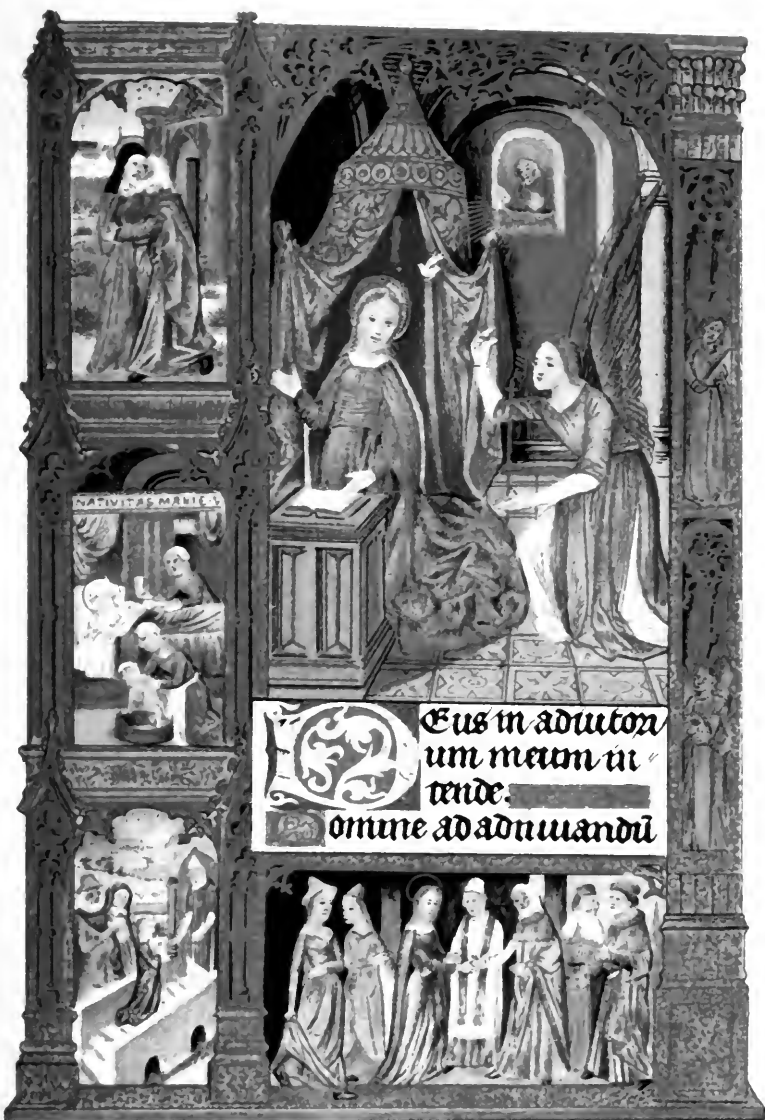 NATIVITAS MARIE
Deus in adiutori
um meum in
tende.
Domine ad adiuuandū